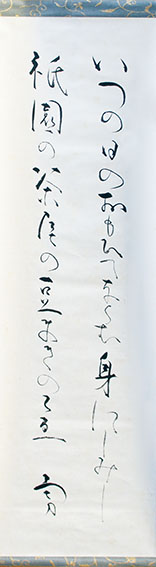 いつの日のおもひてならむ身にしみし
祇園の茶屋の豆まきのこゑ 勇